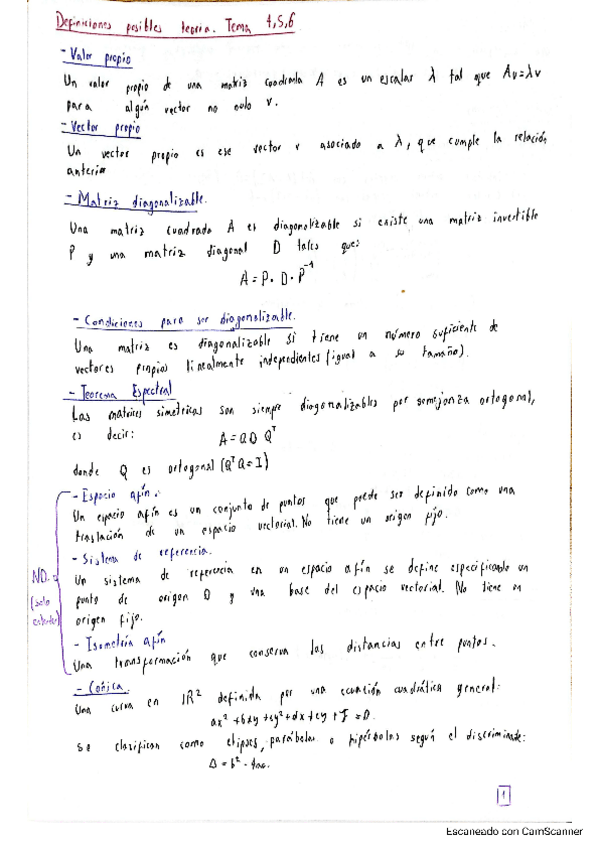 Definiciones posibles teoría. Tema 4,5,6
- Valor propio
Un valor propio de una matriz cuadrada A es un escalar λ tal que Av=λv
para algún vector no nulo v.
- Vector propio
Un vector propio es ese vector v asociado a λ, que cumple la relación
anterior
- Matriz diagonalizable.
Una matriz cuadrada A es diagonalizable si existe una matriz invertible
P y una matriz diagonal D tales que:
A = P · D · P⁻¹
- Condiciones para ser diagonalizable.
Una matriz es diagonalizable si tiene un número suficiente de
vectores propios linealmente independientes (igual a su tamaño).
- Teorema Espectral
Las matrices simétricas son siempre diagonalizables por semejanza ortogonal,
es decir:
A = Q D Qᵀ
donde Q es ortogonal (QᵀQ = I)
- Espacio afín.
Un espacio afín es un conjunto de puntos que puede ser definido como una
traslación de un espacio vectorial. No tiene un origen fijo.
- Sistema de referencia.
NO.
(solo
Un sistema de referencia en un espacio afín se define especificando un
punto de origen O y una base del espacio vectorial. No tiene un
origen fijo.
- Isometría afín
Una transformación que conserva las distancias entre puntos.
- Cónica.
Una curva en IR² definida por una ecuación cuadrática general:
ax² + bxy + cy² + dx + ey + f = 0.
se clasifican como elipses, parábolas o hipérbolas según el discriminante:
Δ = b² - 4ac.
1
Escaneado con CamScanner